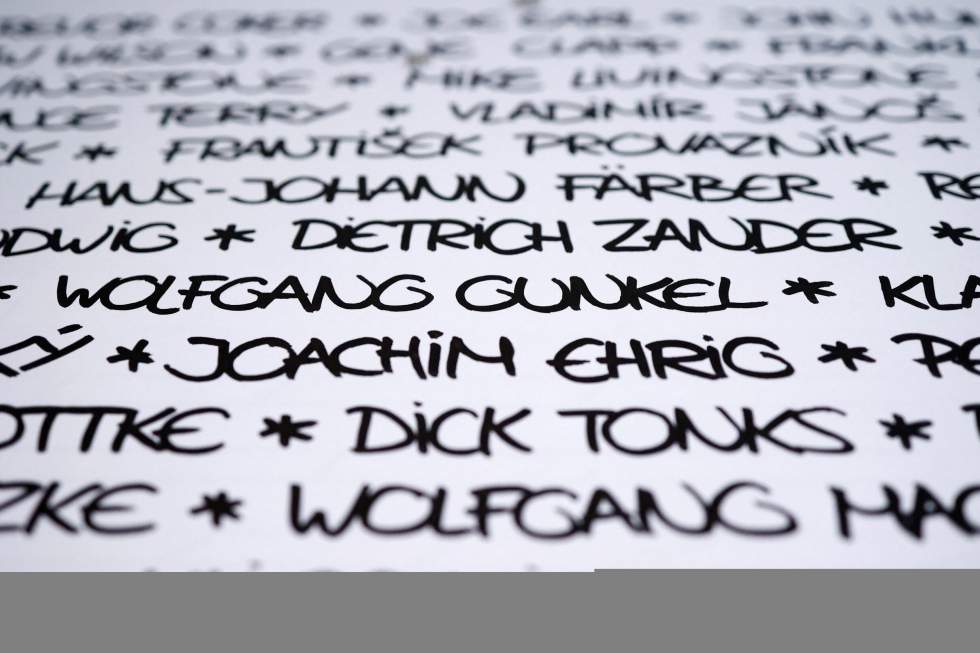 CONER * JOE EARL * JOHN
WILSON * GENE CLAPP *
LIVINGSTONE * MIKE LIVINGSTONE
TERRY * VLADIMÍR JÁNOŠ
* FRANTIŠEK PROVAZNÍK *
HANS-JOHANN FÄRBER *
* DIETRICH ZANDER *
* WOLFGANG GUNKEL *
* JOACHIM EHRIG *
* DICK TONKS *
* WOLFGANG